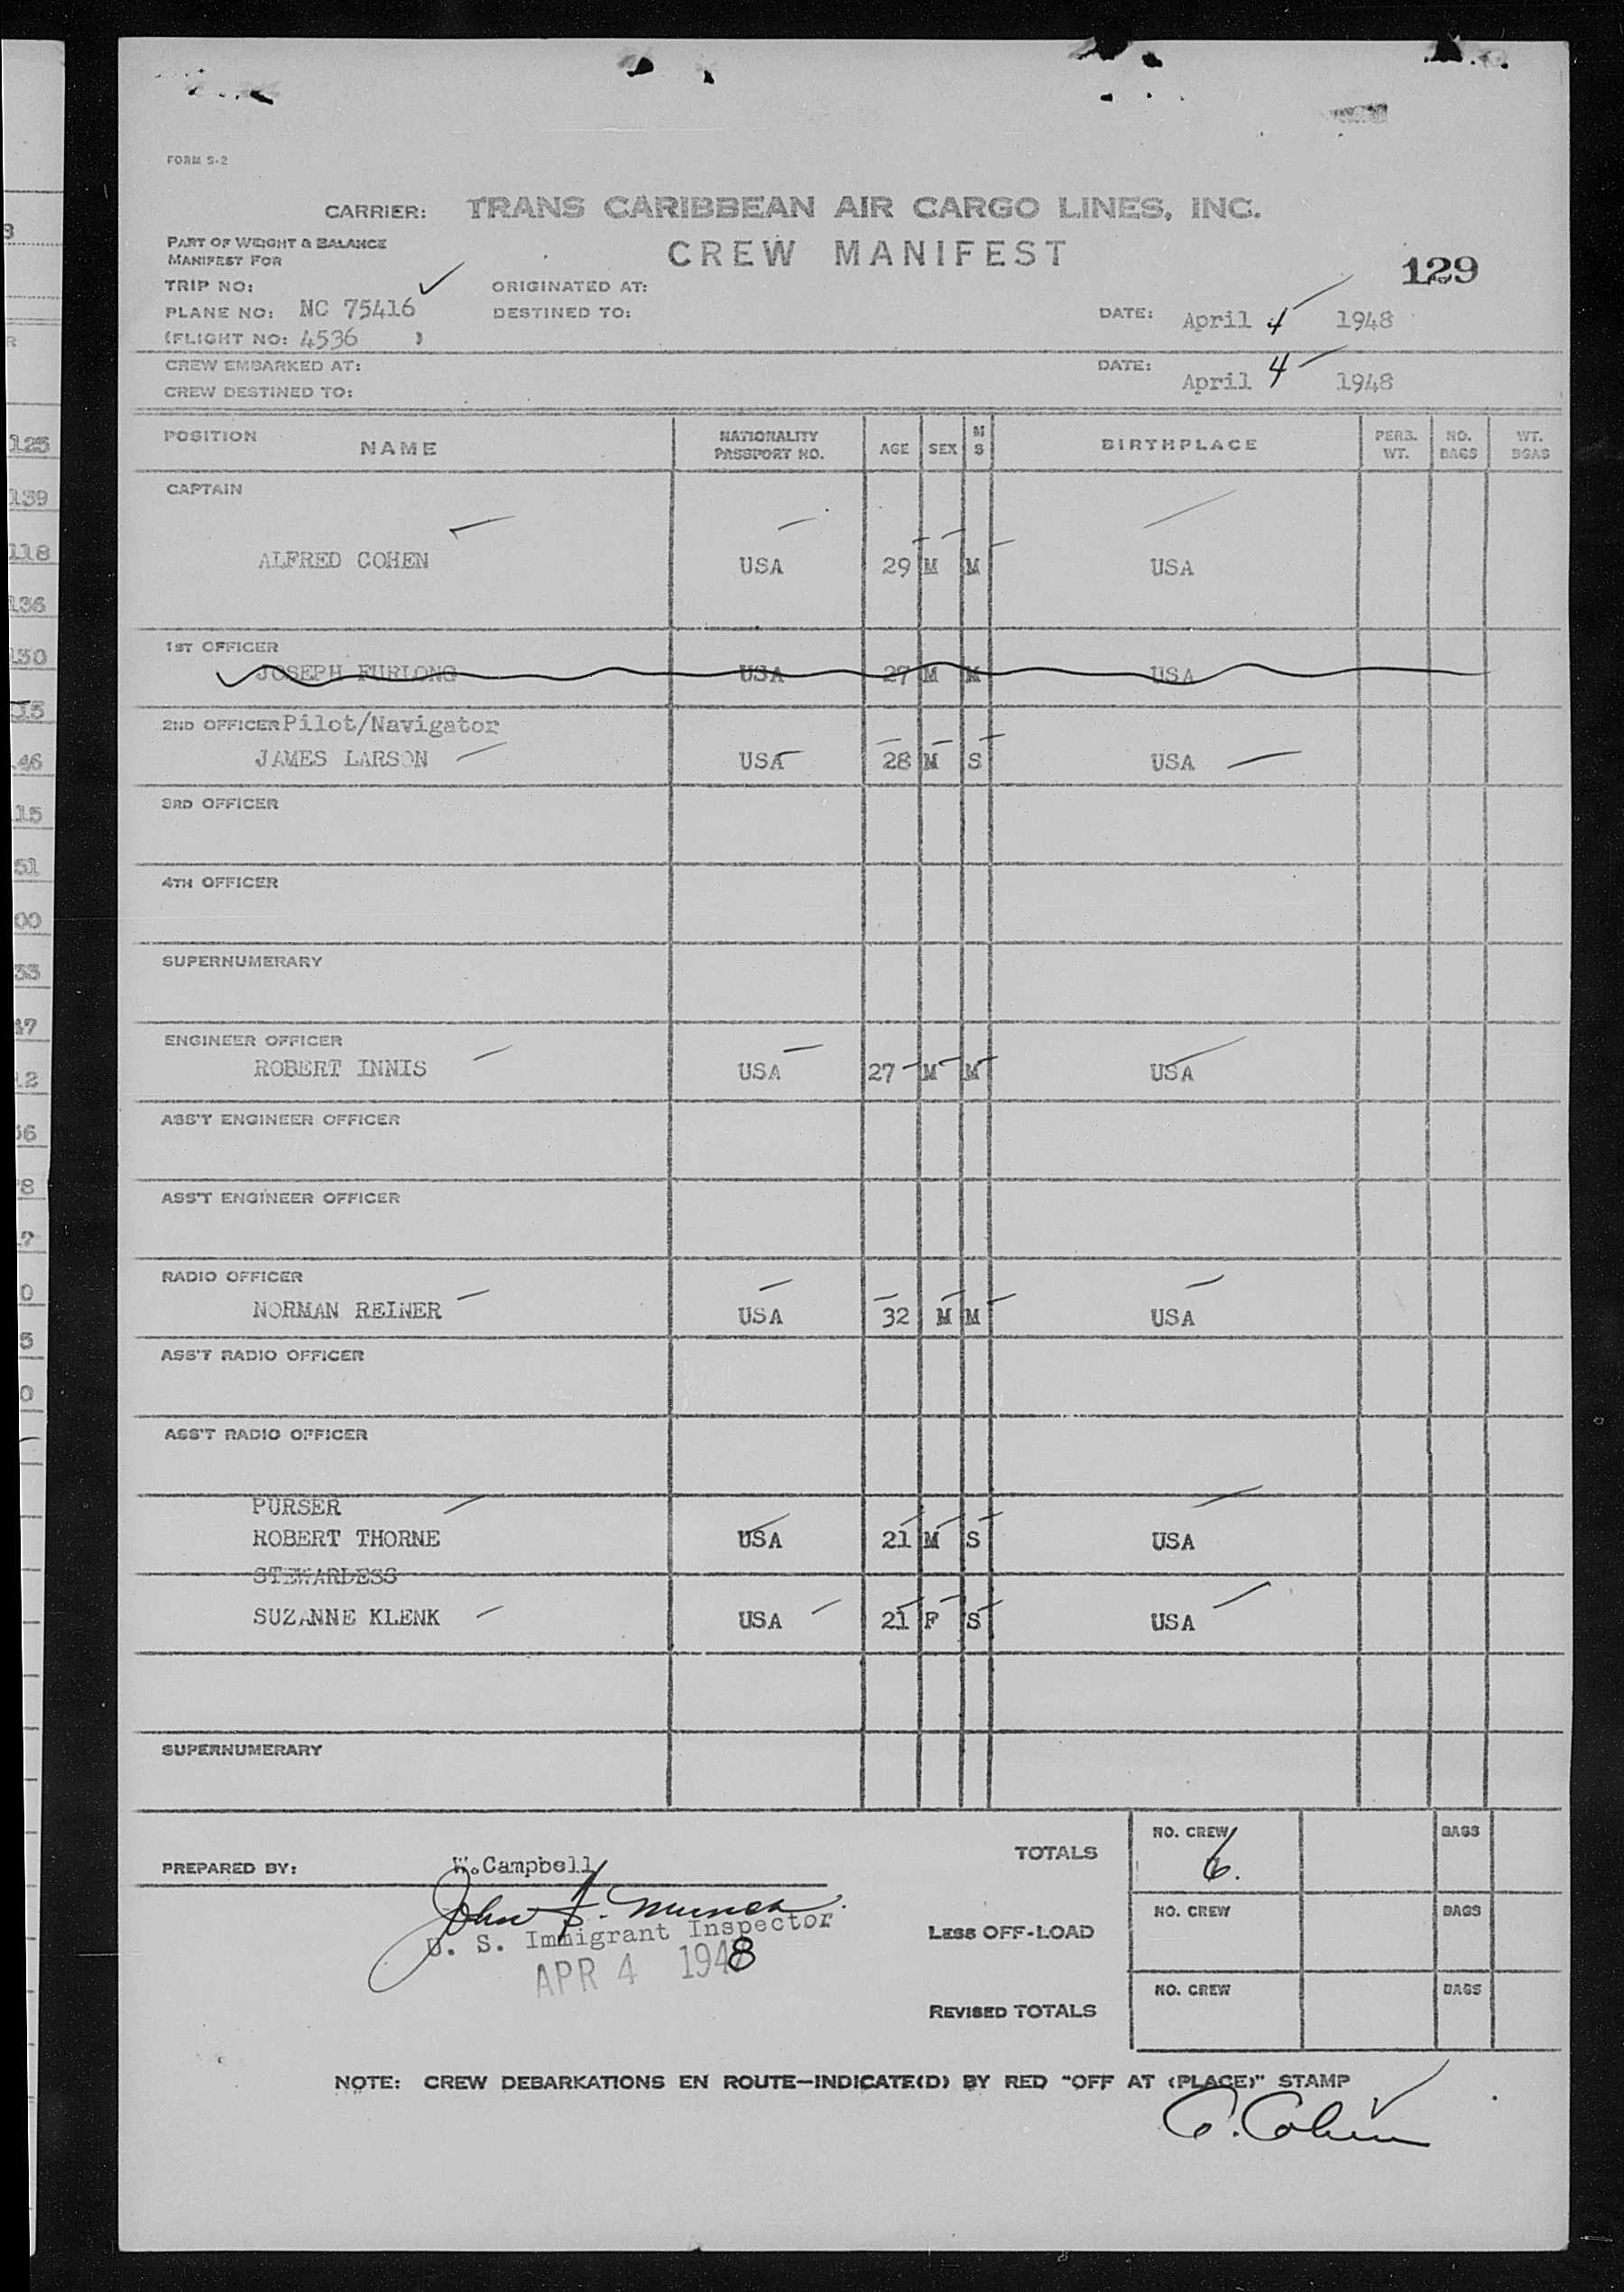 FORM S-2
CARRIER: TRANS CARIBBEAN AIR CARGO LINES, INC.
PART OF WEIGHT & BALANCE
MANIFEST FOR
CREW MANIFEST
129
TRIP NO: ORIGINATED AT:
PLANE NO: NC 75416 DESTINED TO: DATE: April 4 1948
(FLIGHT NO: 4536 )
CREW EMBARKED AT: DATE: April 4 1948
CREW DESTINED TO:
POSITION NAME NATIONALITY PASSPORT NO. AGE SEX M S BIRTHPLACE PERS. WT. NO. BAGS WT. BGAS
CAPTAIN
ALFRED COHEN USA 29 M M USA
1ST OFFICER
JOSEPH FURLONG USA 27 M M USA
2ND OFFICER Pilot/Navigator
JAMES LARSON USA 28 M S USA
3RD OFFICER
4TH OFFICER
SUPERNUMERARY
ENGINEER OFFICER
ROBERT INNIS USA 27 M M USA
ASS'T ENGINEER OFFICER
ASS'T ENGINEER OFFICER
RADIO OFFICER
NORMAN REINER USA 32 M M USA
ASS'T RADIO OFFICER
ASS'T RADIO OFFICER
PURSER
ROBERT THORNE USA 21 M S USA
STEWARDESS
SUZANNE KLENK USA 21 F S USA
SUPERNUMERARY
TOTALS NO. CREW 6. BAGS
PREPARED BY: W.Campbell
John
U. S. Immigrant Inspector
APR 4 1948
LESS OFF-LOAD NO. CREW BAGS
REVISED TOTALS NO. CREW BAGS
NOTE: CREW DEBARKATIONS EN ROUTE—INDICATE(D) BY RED "OFF AT (PLACE)" STAMP
A. Cohen
125
139
118
136
130
15
46
15
51
00
33
47
12
56
8
7
0
5
0